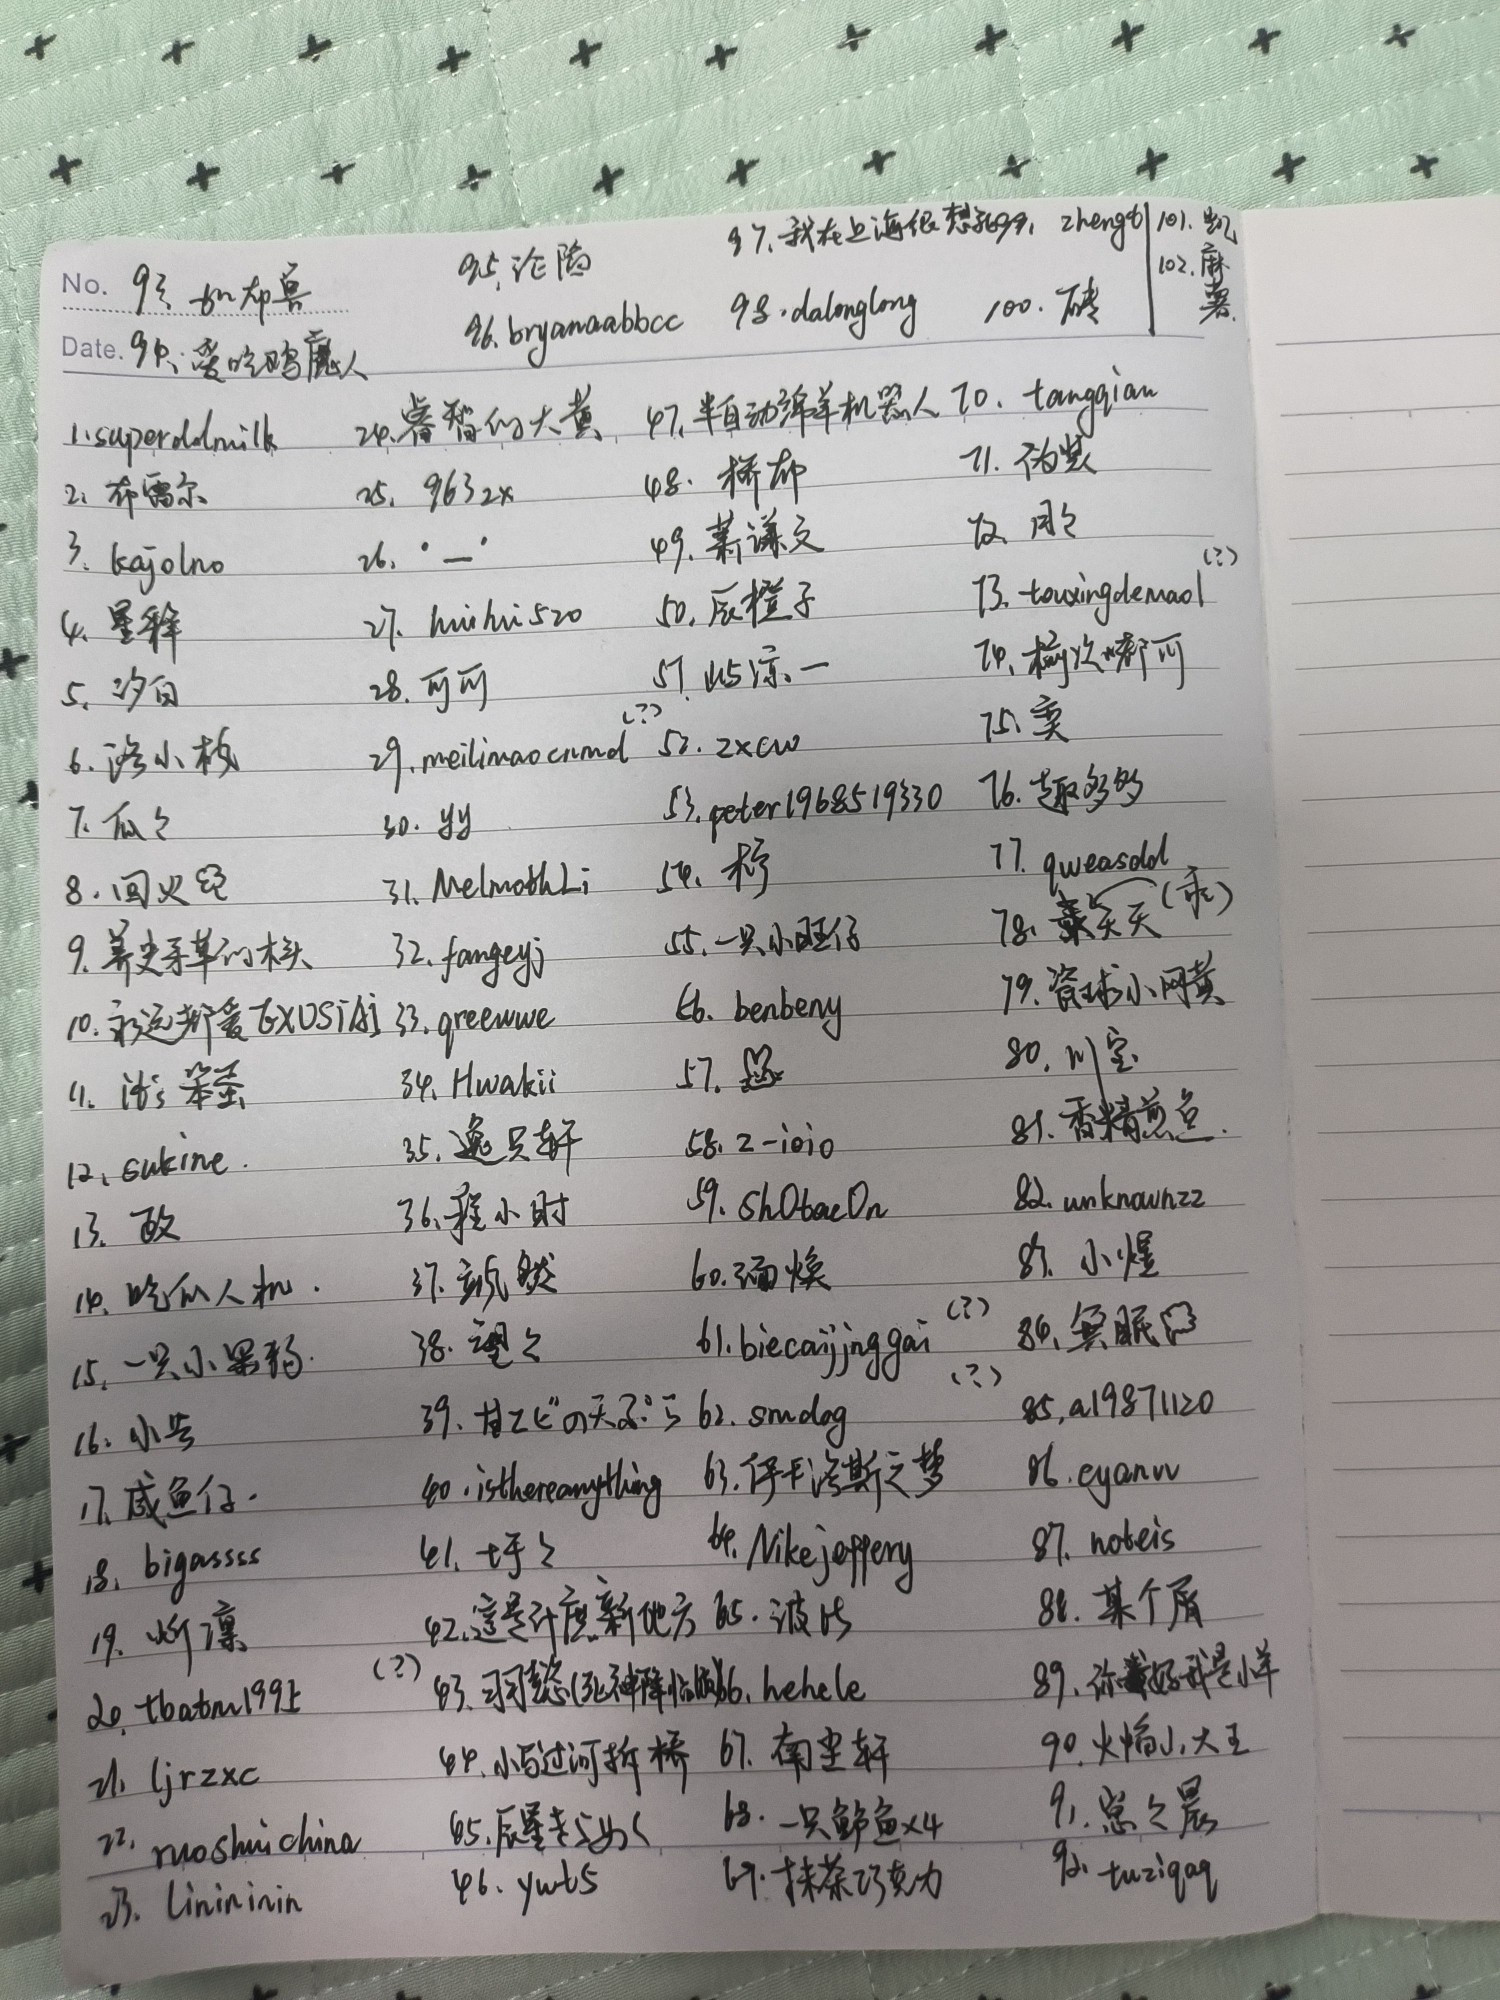 No. 93. 加布兽
Date. 94. 爱吃鸡魔人
95. 沦陷
96. bryanaabbcc
97. 我在上海很想
zhengt
98. dalonglong
100. 砖
101. 凯
102. 麻薯
1. superddmilk
2. 布雷尔
3. kajolno
4. 星释
5. 汐白
6. 洛小枝
7. 瓜々
8. 回火
9. 养史莱姆的木头
10. 永远都爱EXUSIAi
11. 笨蛋
12. sukine.
13. 敃
14. 吃瓜人机.
15. 一只小果
16. 小
17. 咸鱼仔.
18. bigassss
19. 昕凛
20. tbatm1991 (?)
21. ljrzxc
22. ruoshuichina
23. Linininin
24. 睿智的大黄
25. 963zx
26. ·一·
27. huihui520
28. 可可
29. meilimaocnmd (?)
30. yy
31. MelmothLi
32. fangeyj
33. qreewwe
34. Hwakii
35. 逸只轩
36. 程小时
37. 然
38. 望々
39. 甘エビの天ぷら
40. isthereanything
41. 圩々
42. 这是什麽新地方
43. 羽懿(死神降临版)
44. 小马过河拆桥
45. 辰星
46. ywt5
47. 半自动绵羊机器人
48. 桥布
49. 萧谦文
50. 辰橙子
51. 凉一
52. zxcw
53. peter1968519330
54. 柠
55. 一只小旺仔
56. benbeny
57.
58. z-ioio
59. sh0tae0n
60. 焕
61. biecaijjnggai (?)
62. smdog (?)
63. 伊卡洛斯之梦
64. Nikejeffery
65. 波比
66. hehele
67. 南尘轩
68. 一只鲈鱼x4
69. 抹茶巧克力
70. tangqian
71. 伪装
72. 月々
73. touxingdemao1 (?)
74. 榆次娜可
75. 奕
76. 趣多多
77. qweasdd
78. 天天 (乖)
79. 篮球小网黄
80. 川宝
81. 香精煎鱼.
82. unknownzz
83. 小煜
84. 冥眠
85. a19871120
86. eyanvv
87. noteis
88. 某个屑
89. 你好我是小羊
90. 火焰小大王
91. 崽々晨
92. tuziqaq